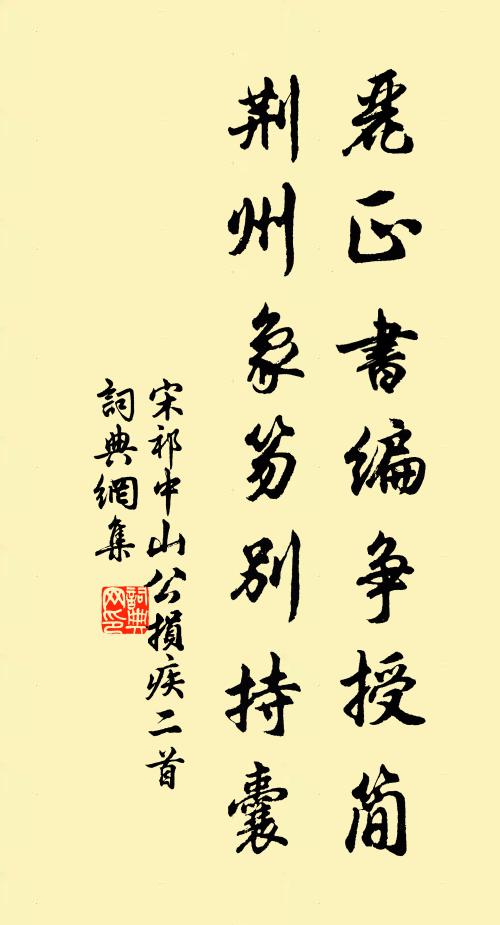 麗正書編争授简
荆州象笏別持囊
宋祁中山公損疾二首
詞典網集
詞典网印